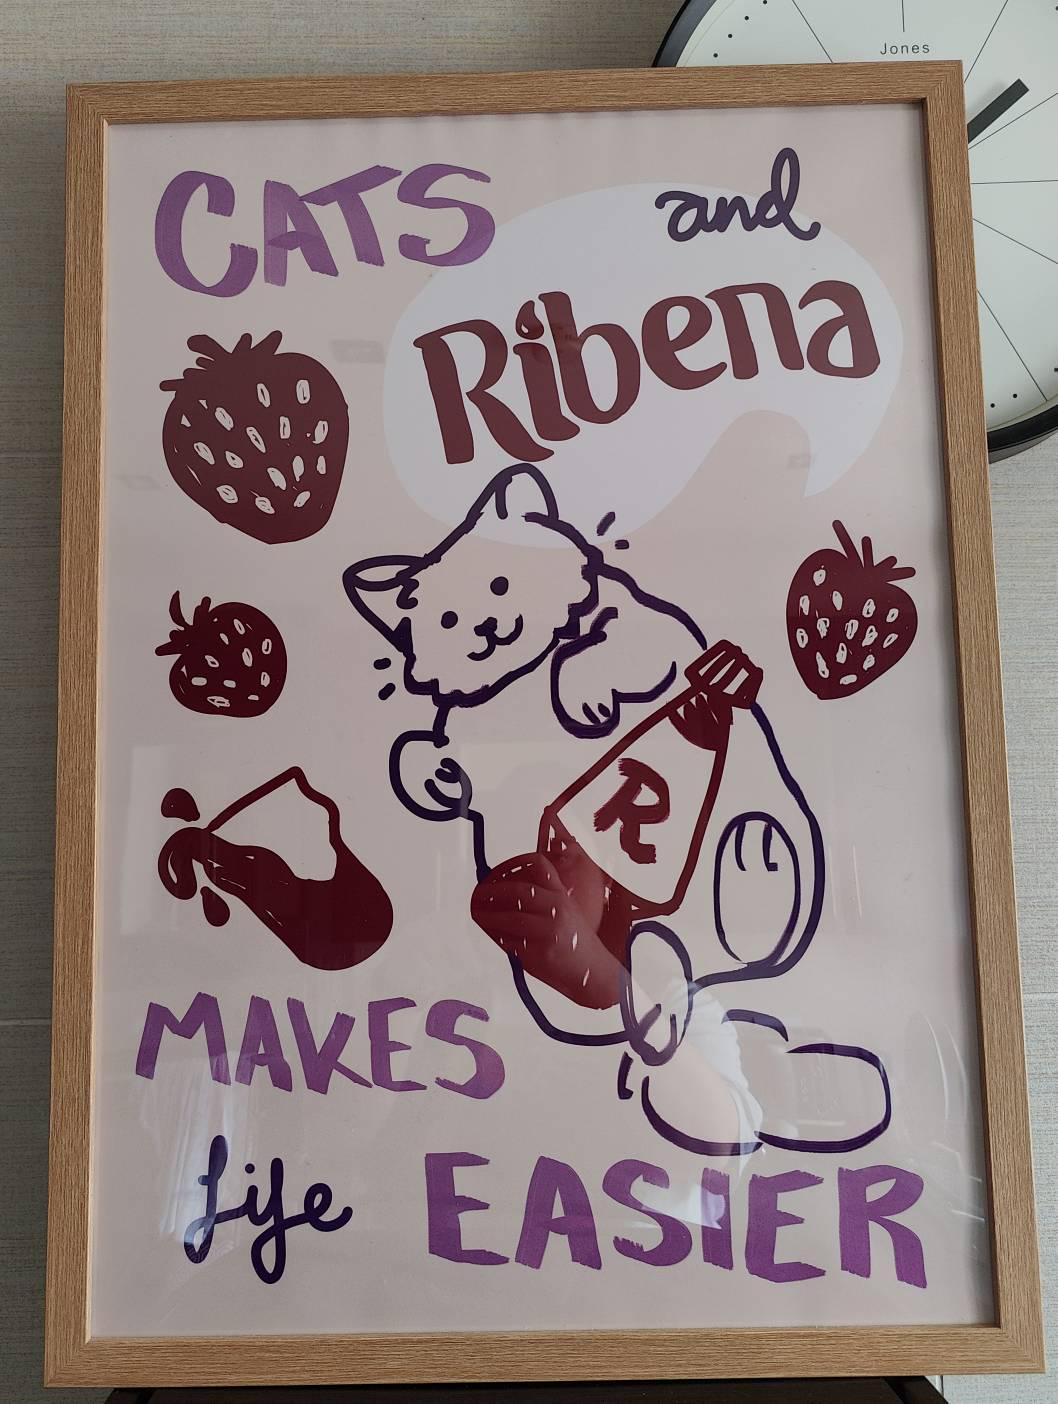 Jones
CATS and
Ribena
R
MAKES
Life EASIER